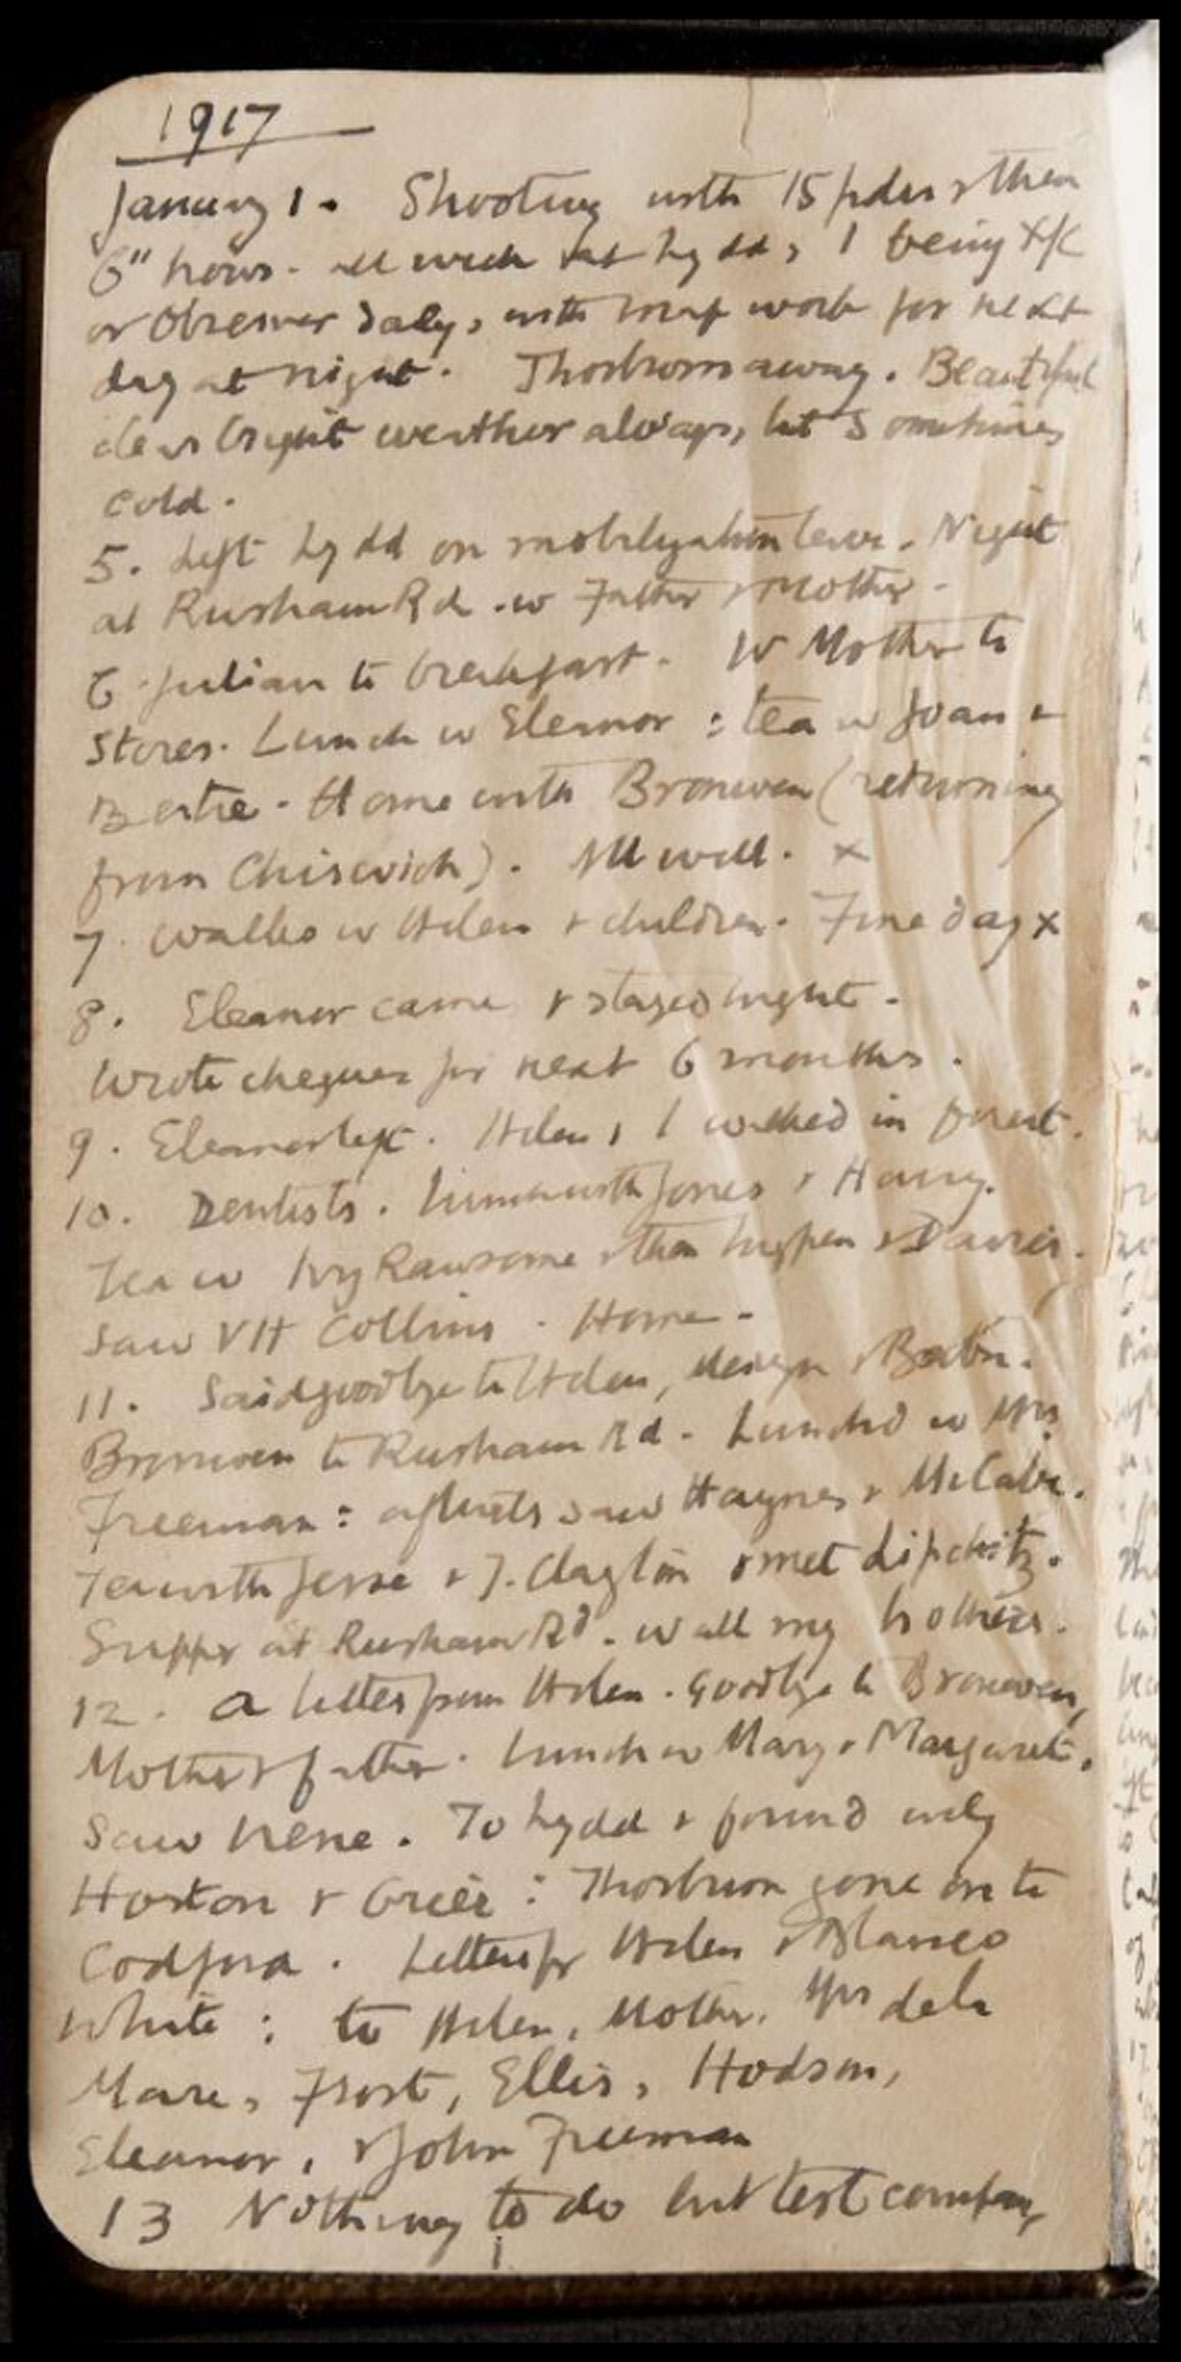 1917
January 1. Shooting with 15 pdrs & then
6" hows. all week at Lydd, I being
or Observer daily, with map work for next
day at night. Thorburn away. Beautiful
clear bright weather always, but sometimes
cold.
5. Left Lydd on mobilization leave. Night
at Rusham Rd. w Father & Mother.
6. Julian to breakfast. W Mother to
Stores. Lunch w Eleanor: tea w Joan &
Bertie. Home with Bronwen (returning
from Chiswick). All well. x
7. Walks w Helen & children. Fine day x
8. Eleanor came & stayed night.
Wrote cheques for next 6 months.
9. Eleanor left. Helen & I walked in forest.
10. Dentists. Lunch with Jones & Harry.
Tea w Ivy Ransome & then & Davies.
Saw VH Collins. Home.
11. Said goodbye to Helen, Mervyn & Baba.
Bronwen to Rusham Rd. Lunched w Mrs
Freeman: afterwds saw Haynes & McCabe.
Tea with Jesse & T. Clayton & met Lipchitz.
Supper at Rusham Rd. w all my brothers.
12. A letter from Helen. Goodbye to Bronwen,
Mother & father. Lunch w Mary & Margaret.
Saw Irene. To Lydd & found only
Horton & Grier: Thorburn gone on to
Codford. Letters fr Helen &
White: to Helen, Mother, Mrs de la
Mare, Frost, Ellis, Hodson,
Eleanor, & John Freeman
13 Nothing to do but test